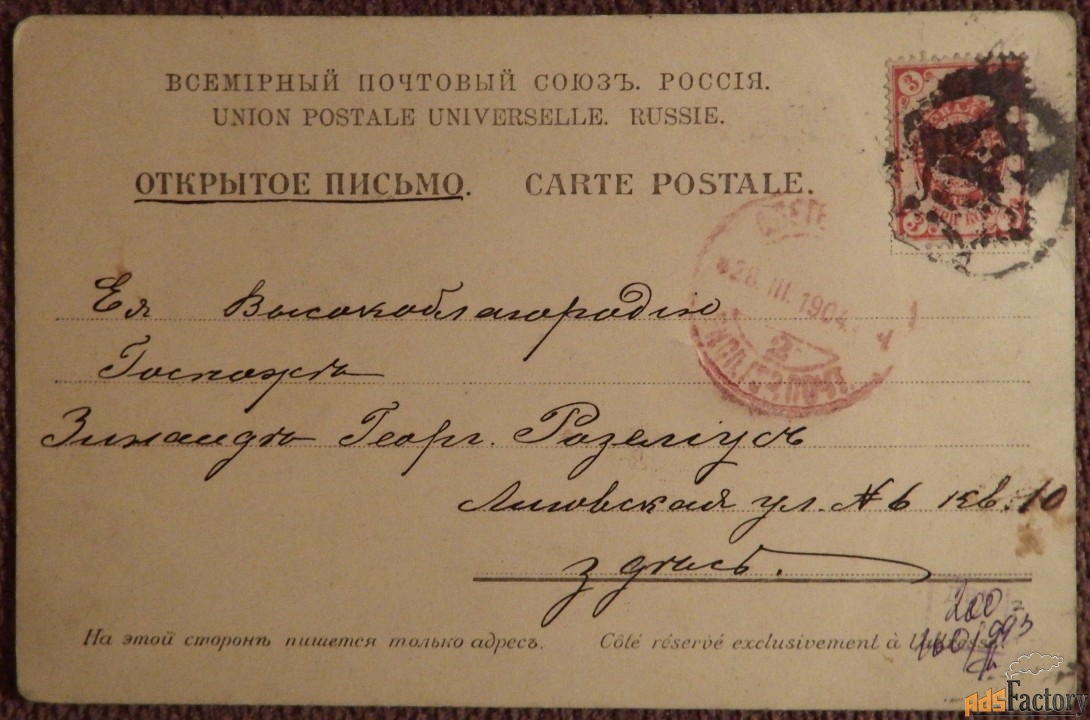 ВСЕМІРНЫЙ ПОЧТОВЫЙ СОЮЗЪ. РОССІЯ.
UNION POSTALE UNIVERSELLE. RUSSIE.
ОТКРЫТОЕ ПИСЬМО. CARTE POSTALE.
3
28. III. 1904.
2
Ея Высокоблагородію
Госпожѣ
Зинаидѣ Георг. Розеліусъ
Лиговская ул. № 6 кв. 10
здѣсь.
На этой сторонѣ пишется только адресъ. Côté réservé exclusivement à
200
AdsFactory